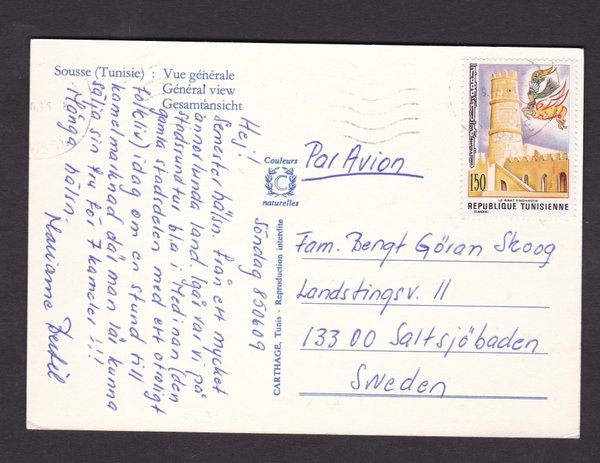 Sousse (Tunisie) : Vue générale
Général view
Gesamtansicht
Söndag 850609
Hej!
Semesterhälsn. från ett mycket
annorlunda land. Igår var vi på
stadsrundtur bl.a i Medinan (den
gamla stadsdelen med ett otroligt
folkliv) idag om en stund till
kamelmarknad där man lär kunna
sälja sin fru för 7 kameler !!!
Många hälsn.
Marianne Bertil
Couleurs
C
naturelles
CARTHAGE, Tunis - Reproduction interdite
Par Avion
150
LE RIBAT MONASTIR
REPUBLIQUE TUNISIENNE
Fam. Bengt Göran Skoog
Landstingsv. 11
133 00 Saltsjöbaden
Sweden